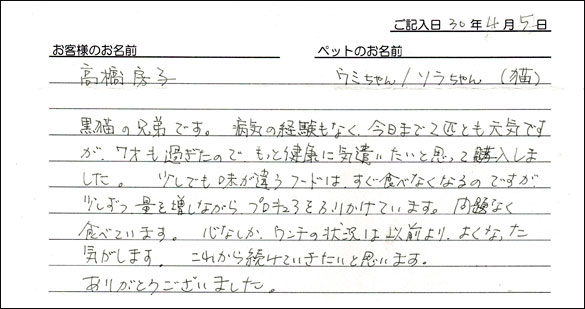 ご記入日 30年4月5日
お客様のお名前 ペットのお名前
高橋房子 ウミちゃん/ソラちゃん (猫)
黒猫の兄弟です。 病気の経験もなく、今日まで2匹とも元気です
が、7才も過ぎたので、もっと健康に気遣いたいと思って購入しま
した。 少しでも味が違うフードは、すぐ食べなくなるのですが、
少しずつ、量を増しながら、プロキュアをふりかけています。問題なく
食べています。 心なしか、ウンチの状況は以前より、よくなった
気がします。 これから続けていきたいと思います。
ありがとうございました。